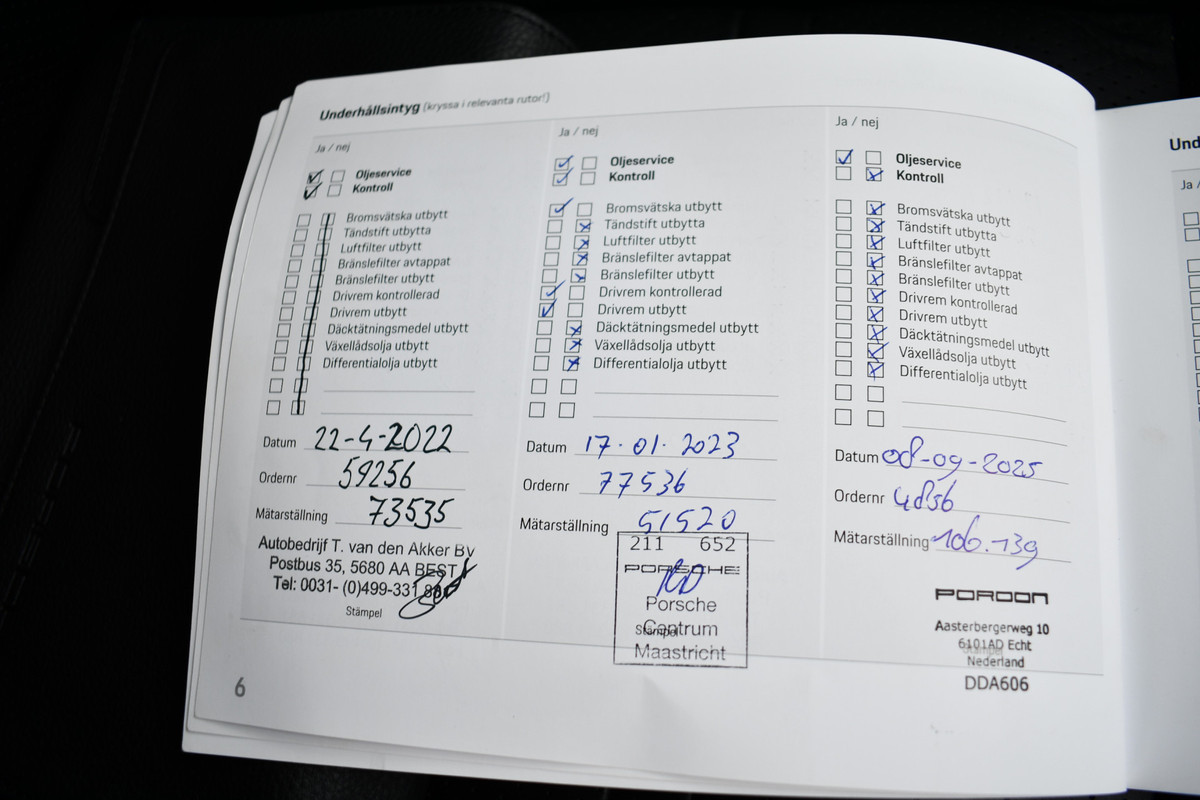 Underhållsintyg (kryssa i relevanta rutor!)
Ja / nej
Oljeservice
Kontroll
Bromsvätska utbytt
Tändstift utbytta
Luftfilter utbytt
Bränslefilter avtappat
Bränslefilter utbytt
Drivrem kontrollerad
Drivrem utbytt
Däcktätningsmedel utbytt
Växellådsolja utbytt
Differentialolja utbytt
Datum 22-4-2022
Ordernr 59256
Mätarställning 73535
Autobedrijf T. van den Akker BV
Postbus 35, 5680 AA BEST
Tel: 0031- (0)499-331
Stämpel
6
Ja / nej
Oljeservice
Kontroll
Bromsvätska utbytt
Tändstift utbytta
Luftfilter utbytt
Bränslefilter avtappat
Bränslefilter utbytt
Drivrem kontrollerad
Drivrem utbytt
Däcktätningsmedel utbytt
Växellådsolja utbytt
Differentialolja utbytt
Datum 17.01.2023
Ordernr 77536
Mätarställning 51520
211 652
PORSCHE
Porsche
Centrum
Stämpel
Maastricht
Ja / nej
Oljeservice
Kontroll
Bromsvätska utbytt
Tändstift utbytta
Luftfilter utbytt
Bränslefilter avtappat
Bränslefilter utbytt
Drivrem kontrollerad
Drivrem utbytt
Däcktätningsmedel utbytt
Växellådsolja utbytt
Differentialolja utbytt
Datum 08-09-2025
Ordernr 4856
Mätarställning 106.139
POROON
Aasterbergerweg 10
6101AD Echt
Stämpel
Nederland
DDA606
Und
Ja /